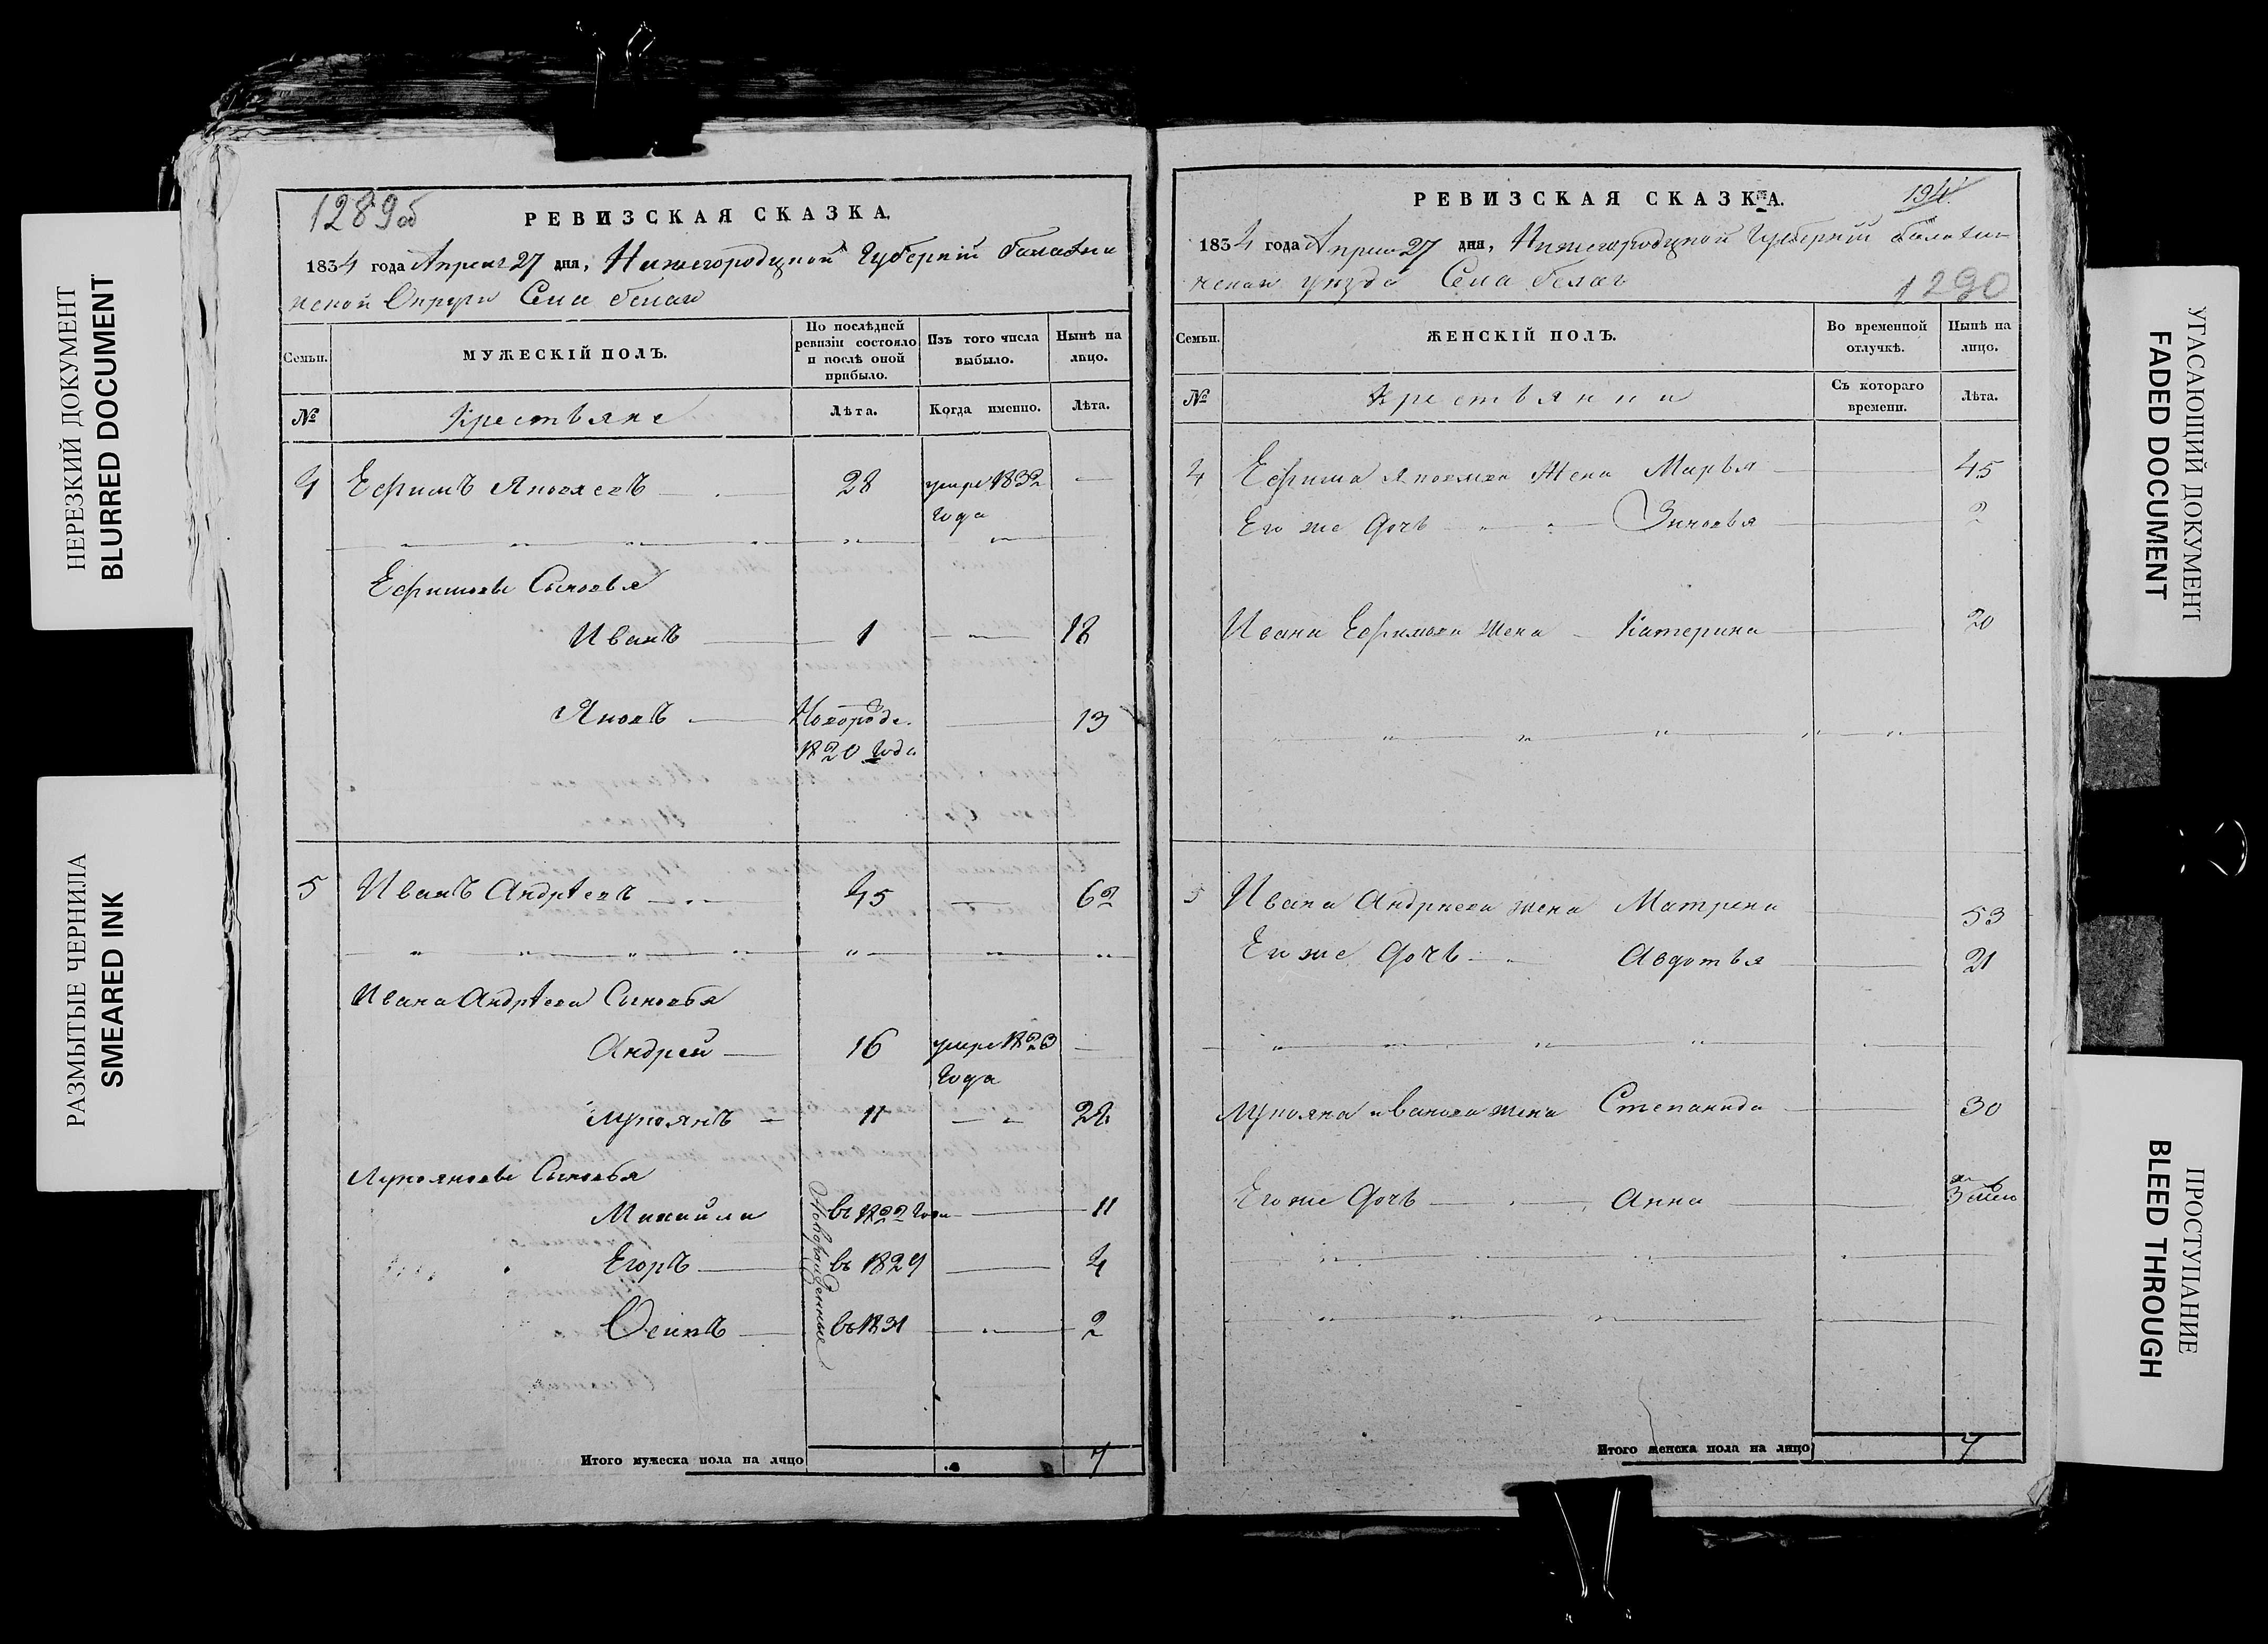 НЕРЕЗКИЙ ДОКУМЕНТ
BLURRED DOCUMENT
РАЗМЫТЫЕ ЧЕРНИЛА
SMEARED INK
1289об
РЕВИЗСКАЯ СКАЗКА,
1834 года Апреля 27 дня, Нижегородцкой Губерніи балахни
нской Округи Села
Семьи.
МУЖЕСКІЙ ПОЛЪ.
По послѣдней ревизіи состояло и послѣ оной прибыло.
Изъ того числа выбыло.
Нынѣ на лицо.
№
Крестьяне
Лѣта.
Когда именно.
Лѣта.
4 Ефимъ Яковлевъ 28 умре 1832 года
Ефимовы Сыновья
Иванъ 1 18
Яковъ Новорожде. 1820 года 13
5 Иванъ Андрѣевъ 45 62
Ивана Андрѣева Сыновья
Андрей 16 умре 1823 года
Лукоянъ 11 28
Лукояновы Сыновья
Новорожденные
Михайла въ 1822 года 11
Егоръ въ 1829 4
Осипъ въ 1831 2
Итого мужеска пола на лицо 7
РЕВИЗСКАЯ СКАЗКА.
194
1834 года Апреля 27 дня, Нижегородцкой Губерніи балахни
нскаи уезда Села
1290
Семьи.
ЖЕНСКІЙ ПОЛЪ.
Во временной отлучкѣ.
Нынѣ на лицо.
№
Крестьянки
Съ котораго времени.
Лѣта.
4 Ефима Яковлева Жена Марья 45
Его же дочь Зиновья 2
Ивана Ефимова жена Катерина 20
5 Ивана Андриева жена Матрена 53
Его же дочь Авдотья 21
Лукояна иванова жена Степанида 30
Его же дочь Анна
Итого женска пола на лицо 7
УГАСАЮЩИЙ ДОКУМЕНТ
FADED DOCUMENT
ПРОСТУПАНИЕ
BLEED THROUGH